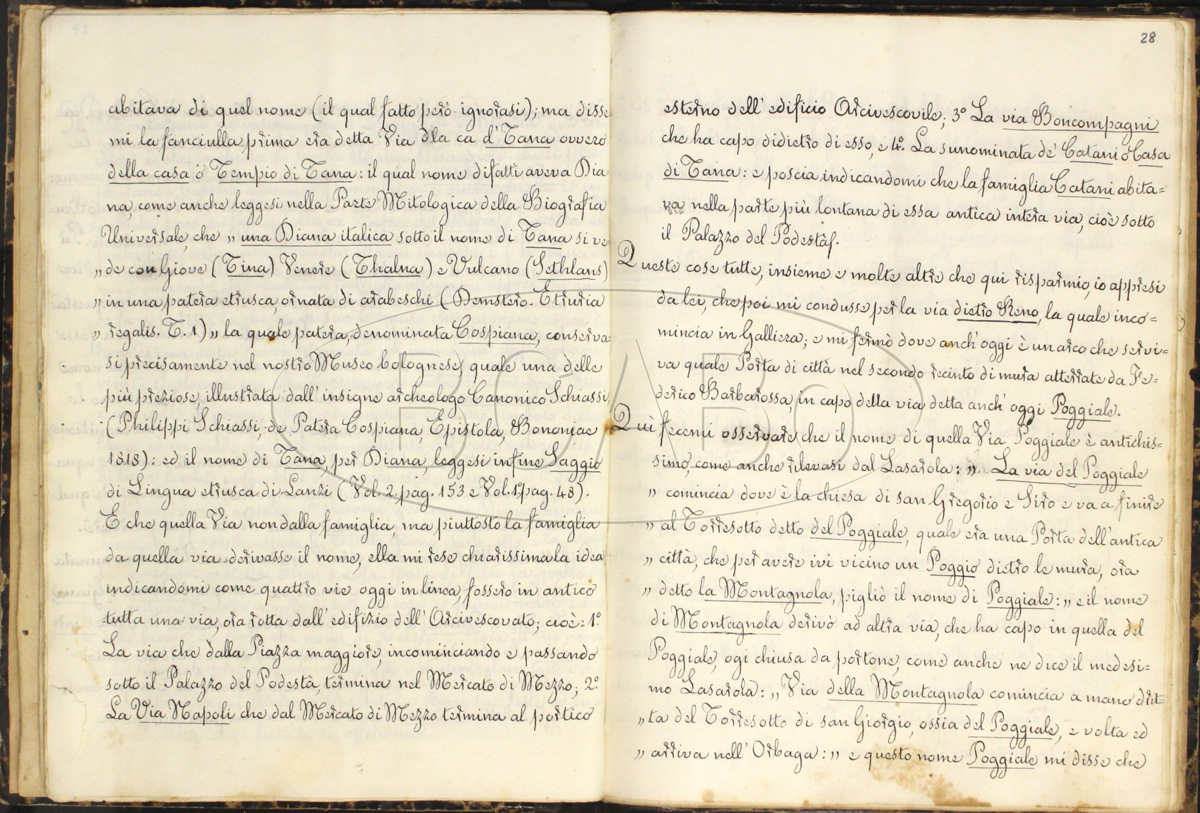 abitava di quel nome (il qual fatto però ignorasi); ma disse
mi la fanciulla, prima era detta Via dla ca d' Tana ovvero
della casa o Tempio di Tana: il qual nome difatti aveva Dia
na, come anche leggesi nella Parte Mitologica della Biografia
Universale, che „ una Diana italica sotto il nome di Tana si ve
„ de con Giove (Tina) Venere (Thalna) e Vulcano (Sethlans)
„ in una patera etrusca, ornata di arabeschi (Demstero. Etruria
„ regalis. T. 1) „ la quale patera, denominata Cospiana, conserva-
si precisamente nel nostro Museo bolognese, quale una delle
più preziose, illustrata dall' insigne archeologo Canonico Schiassi
(Philippi Schiassi, de Patera Cospiana, Epistola, Bononiae
1818): ed il nome di Tana, per Diana, leggesi infine Saggio
di Lingua etrusca di Lanzi (Vol. 2, pag. 153 e Vol. 1º pag. 48).
E che quella Via non dalla famiglia, ma piuttosto la famiglia
da quella via derivasse il nome, ella mi rese chiarissima la idea
indicandomi come quattro vie oggi in linea, fossero in antico
tutta una via, ora rotta dall' edifizio dell' Arcivescovato; cioè: 1º
La via che dalla Piazza maggiore, incominciando e passando
sotto il Palazzo del Podestà, termina nel Mercato di Mezzo; 2º
La Via Napoli che dal Mercato di Mezzo termina al portico
28
esterno dell' edificio Arcivescovile; 3º La via Boncompagni
che ha capo didietro di esso, e 4º. La sunominata de' Catani o Casa
di Tana: e poscia, indicandomi che la famiglia Catani abita=
va nella parte più lontana di essa antica intera via, cioè sotto
il Palazzo del Podestà.
Queste cose tutte, insieme e molte altre che qui risparmio, io appresi
da lei, che poi mi condusse per la via dietro Reno, la quale inco=
mincia in Galliera; e mi fermò dove anch' oggi è un arco che servi=
va quale Porta di città nel secondo recinto di mura atterrate da Fe=
derico Barbarossa, in capo della via detta anch' oggi Poggiale.
Qui fecemi osservare che il nome di quella Via Poggiale è antichis=
simo, come anche rilevasi dal Lasarola: „ La via del Poggiale
„ comincia dove è la chiesa di san Gregorio e Siro e va a finire
„ al Torresotto detto del Poggiale, quale era una Porta dell' antica
„ città, che per avere ivi vicino un Poggio dietro le mura, ora
„ detto la Montagnola, pigliò il nome di Poggiale: „ e il nome
di Montagnola derivò ad altra via, che ha capo in quella del
Poggiale, ogi chiusa da portone, come anche ne dice il medesi=
mo Lasarola: „ Via della Montagnola comincia a mano drit=
„ ta del Torresotto di san Giorgio, ossia del Poggiale, e volta ed
„ arriva nell' Orbaga: „ e questo nome Poggiale mi disse che
BCABo